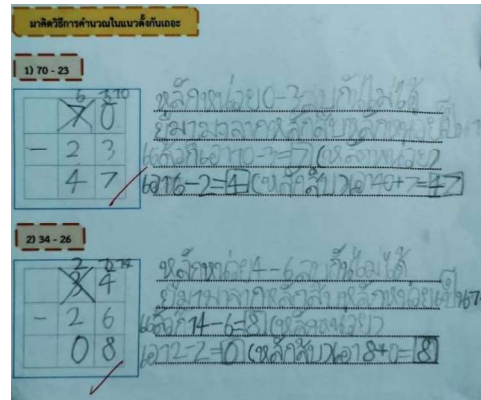 มาคิดวิธีการคำนวณในแนวตั้งกันเถอะ
1) 70 - 23
6 10
7 0
- 2 3
4 7
หลักหน่วย 0-3 ลบกันไม่ได้
ยืมมาจากหลักสิบ หลักหน่วยเป็น
แล้วก็เอา 10-3=7 (หลักหน่วย)
เอา 6-2=4 (หลักสิบ) เอา 40+7=47
2) 34 - 26
2 14
3 4
- 2 6
0 8
หลักหน่วย 4-6 ลบกันไม่ได้
ยืมมาจากหลักสิบ หลักหน่วยเป็น
แล้วก็ 14-6=8 (หลักหน่วย)
เอา 2-2=0 (หลักสิบ) เอา 8+0=8